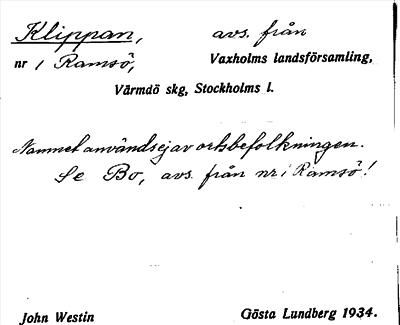 Klippan, avs. från
nr 1 Ramsö, Vaxholms landsförsamling,
Värmdö skg, Stockholms l.
Namnet användes ej av ortsbefolkningen.
Se Bo, avs. från nr 1 Ramsö!
John Westin Gösta Lundberg 1934.